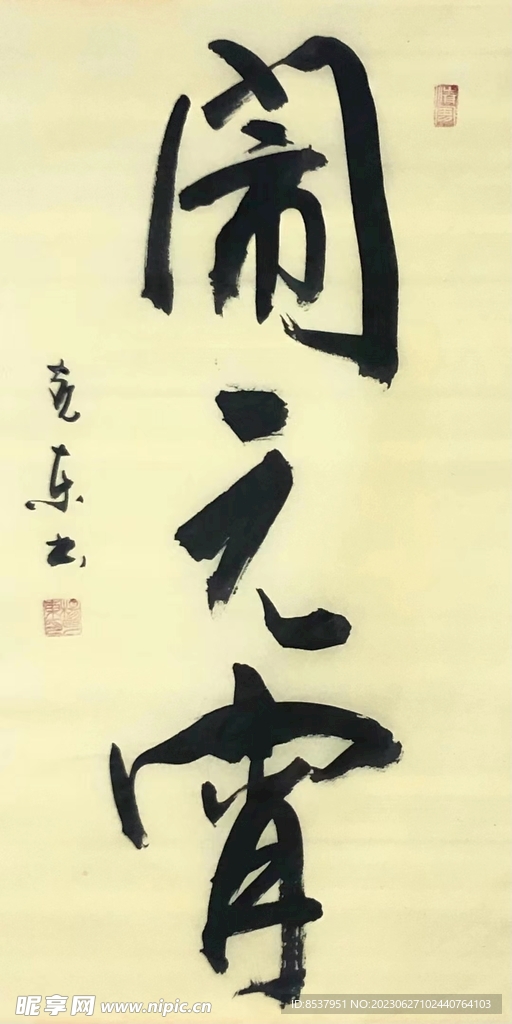 闹元宵
克东书
昵享网 www.nipic.cn
ID:8537951 NO:20230627102440764103